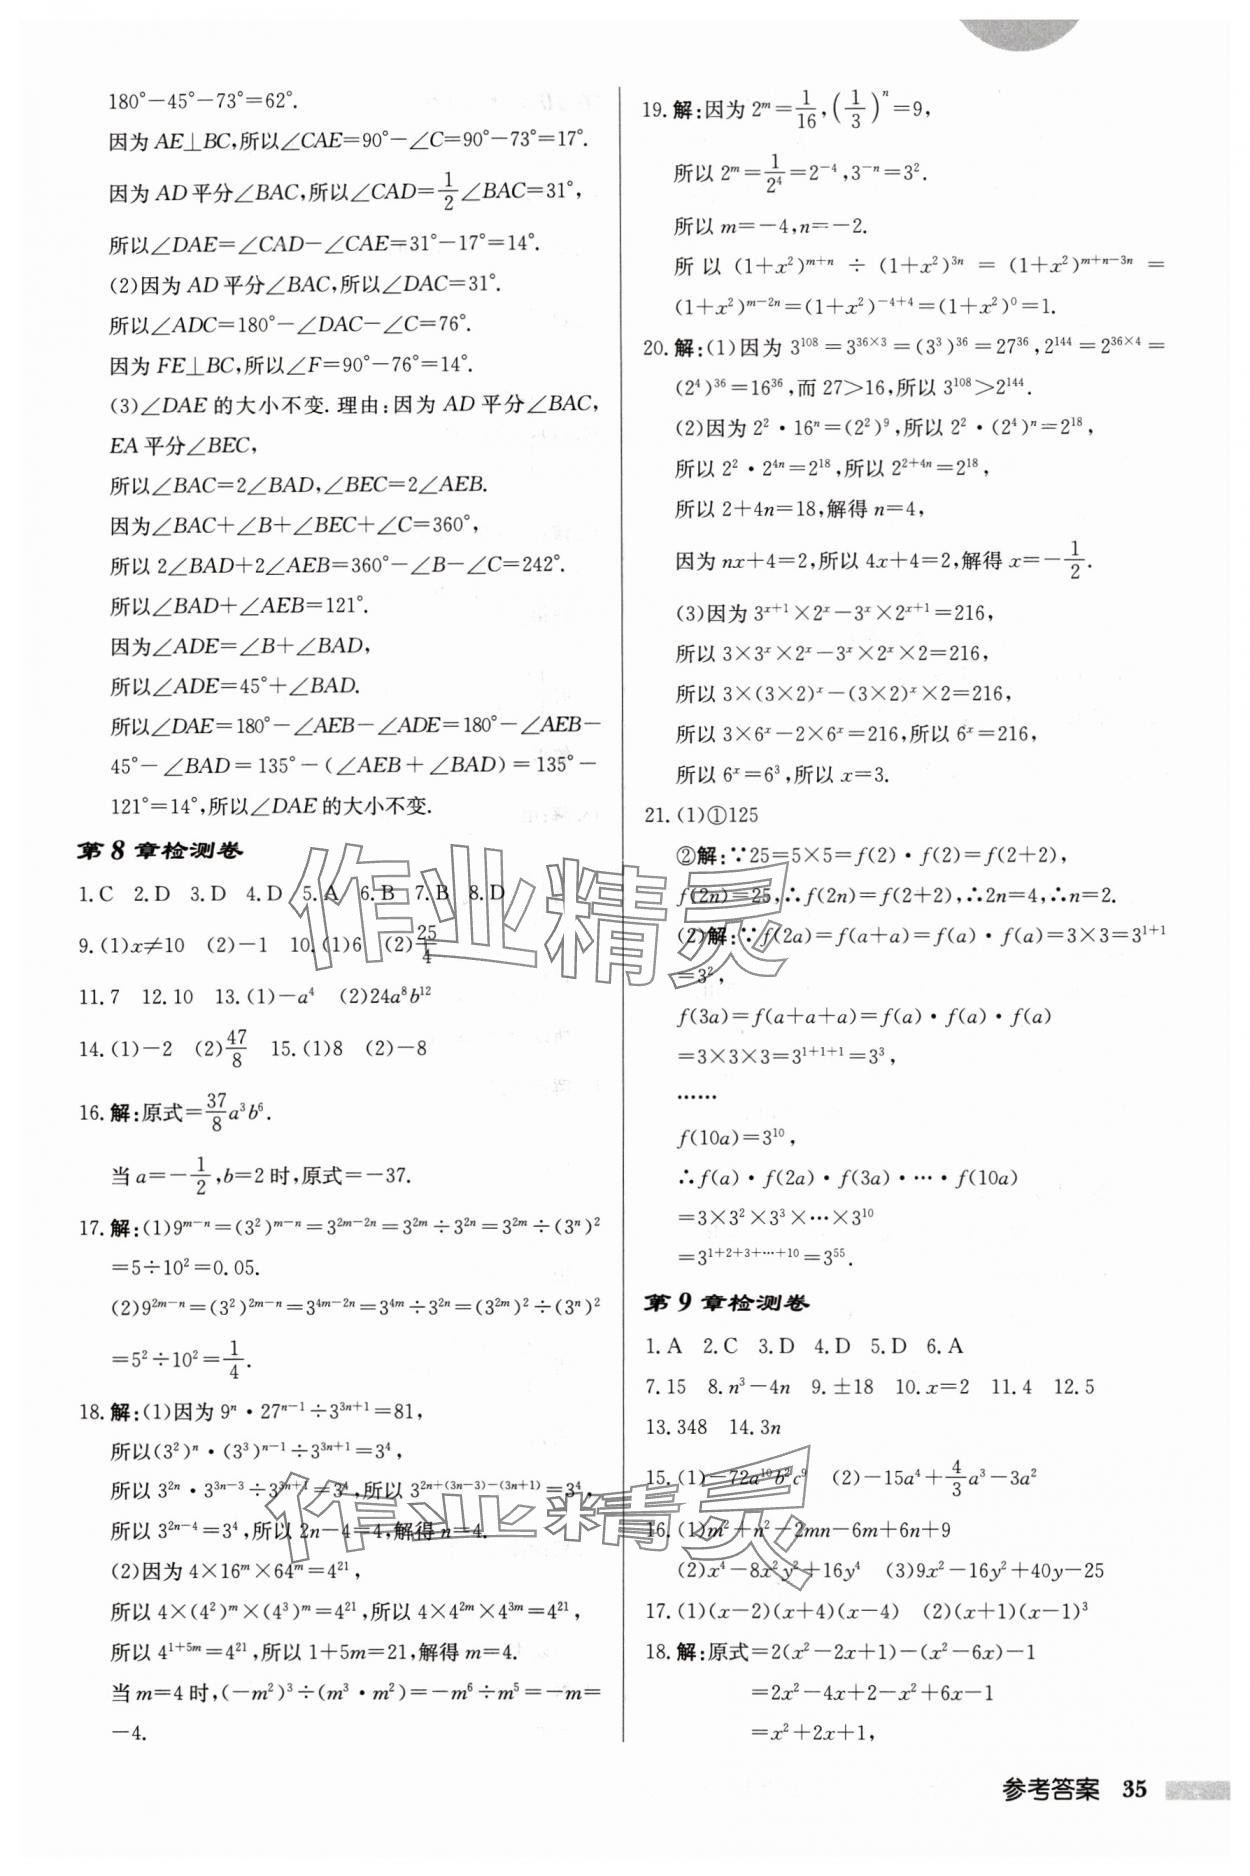 180°−45°−73°=62°.
因为 AE⊥BC,所以∠CAE=90°−∠C=90°−73°=17°.
因为 AD 平分∠BAC,所以∠CAD=1/2∠BAC=31°,
所以∠DAE=∠CAD−∠CAE=31°−17°=14°.
(2)因为 AD 平分∠BAC,所以∠DAC=31°.
所以∠ADC=180°−∠DAC−∠C=76°.
因为 FE⊥BC,所以∠F=90°−76°=14°.
(3)∠DAE 的大小不变.理由:因为 AD 平分∠BAC,
EA 平分∠BEC,
所以∠BAC=2∠BAD,∠BEC=2∠AEB.
因为∠BAC+∠B+∠BEC+∠C=360°,
所以 2∠BAD+2∠AEB=360°−∠B−∠C=242°.
所以∠BAD+∠AEB=121°.
因为∠ADE=∠B+∠BAD,
所以∠ADE=45°+∠BAD.
所以∠DAE=180°−∠AEB−∠ADE=180°−∠AEB−
45°−∠BAD=135°−(∠AEB+∠BAD)=135°−
121°=14°,所以∠DAE 的大小不变.
第 8 章检测卷
1.C 2.D 3.D 4.D 5.A 6.B 7.B 8.D
9.(1)x≠10 (2)−1 10.(1)6 (2)25/4
11.7 12.10 13.(1)−a⁴ (2)24a⁸b¹²
14.(1)−2 (2)47/8 15.(1)8 (2)−8
16.解:原式=37/8a³b⁶.
当 a=−1/2,b=2 时,原式=−37.
17.解:(1)9^(m−n)=(3²)^(m−n)=3^(2m−2n)=3^(2m)÷3^(2n)=3^(2m)÷(3^n)²
=5÷10²=0.05.
(2)9^(2m−n)=(3²)^(2m−n)=3^(4m−2n)=3^(4m)÷3^(2n)=(3^(2m))²÷(3^n)²
=5²÷10²=1/4.
18.解:(1)因为 9^n·27^(n−1)÷3^(3n+1)=81,
所以(3²)^n·(3³)^(n−1)÷3^(3n+1)=3⁴,
所以 3^(2n)·3^(3n−3)÷3^(3n+1)=3⁴,所以 3^(2n+(3n−3)−(3n+1))=3⁴,
所以 3^(2n−4)=3⁴,所以 2n−4=4,解得 n=4.
(2)因为 4×16^m×64^m=4²¹,
所以 4×(4²)^m×(4³)^m=4²¹,所以 4×4^(2m)×4^(3m)=4²¹,
所以 4^(1+5m)=4²¹,所以 1+5m=21,解得 m=4.
当 m=4 时,(−m²)³÷(m³·m²)=−m⁶÷m⁵=−m=
−4.
19.解:因为 2^m=1/16,(1/3)^n=9,
所以 2^m=1/2⁴=2^(−4),3^(−n)=3².
所以 m=−4,n=−2.
所以 (1+x²)^(m+n)÷(1+x²)^(3n)=(1+x²)^(m+n−3n)=
(1+x²)^(m−2n)=(1+x²)^(−4+4)=(1+x²)⁰=1.
20.解:(1)因为 3¹⁰⁸=3^(36×3)=(3³)³⁶=27³⁶,2¹⁴⁴=2^(36×4)=
(2⁴)³⁶=16³⁶,而 27>16,所以 3¹⁰⁸>2¹⁴⁴.
(2)因为 2²·16^n=(2²)⁹,所以 2²·(2⁴)^n=2¹⁸,
所以 2²·2^(4n)=2¹⁸,所以 2^(2+4n)=2¹⁸,
所以 2+4n=18,解得 n=4,
因为 nx+4=2,所以 4x+4=2,解得 x=−1/2.
(3)因为 3^(x+1)×2^x−3^x×2^(x+1)=216,
所以 3×3^x×2^x−3^x×2^x×2=216,
所以 3×(3×2)^x−(3×2)^x×2=216,
所以 3×6^x−2×6^x=216,所以 6^x=216,
所以 6^x=6³,所以 x=3.
21.(1)①125
②解:∵25=5×5=f(2)·f(2)=f(2+2),
f(2n)=25,∴f(2n)=f(2+2),∴2n=4,∴n=2.
(2)解:∵f(2a)=f(a+a)=f(a)·f(a)=3×3=3^(1+1)
=3²,
f(3a)=f(a+a+a)=f(a)·f(a)·f(a)
=3×3×3=3^(1+1+1)=3³,
……
f(10a)=3¹⁰,
∴f(a)·f(2a)·f(3a)·…·f(10a)
=3×3²×3³×…×3¹⁰
=3^(1+2+3+…+10)=3⁵⁵.
第 9 章检测卷
1.A 2.C 3.D 4.D 5.D 6.A
7.15 8.n³−4n 9.±18 10.x=2 11.4 12.5
13.348 14.3n
15.(1)−72a¹⁰b²c⁹ (2)−15a⁴+4/3a³−3a²
16.(1)m²+n²−2mn−6m+6n+9
(2)x⁴−8x²y²+16y⁴ (3)9x²−16y²+40y−25
17.(1)(x−2)(x+4)(x−4) (2)(x+1)(x−1)³
18.解:原式=2(x²−2x+1)−(x²−6x)−1
=2x²−4x+2−x²+6x−1
=x²+2x+1,
参考答案 35
作业精灵
作业精灵